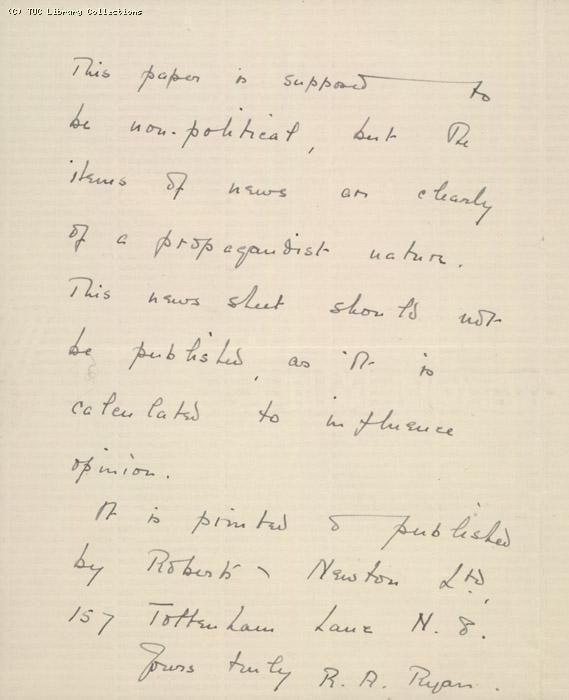 (C) TUC Library Collections
This paper is supposed to
be non-political, but the
items of news are clearly
of a propagandist nature.
This news sheet should not
be published, as it is
calculated to influence
opinion.
It is printed & published
by Roberts & Newton Ltd,
157 Tottenham Lane N. 8.
Yours truly R. A. Ryan.